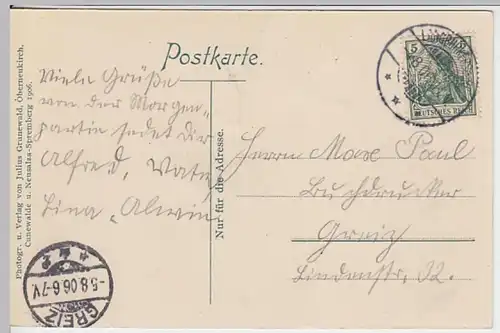 Postkarte.
Viele Grüße
von der Morgen-
partie sedet Dir
Alfred, Vater
Lina, Alwin
Nur für die Adresse.
Photogr. u. Verlag von Julius Grunewald, Oberneukirch,
Cunewalde u. Neusalza-Spremberg 1906.
5
DEUTSCHES REICH
Herrn Max Paul
Buchdrucker
Greiz
Lindenstr. 32.
-5.8.06.6-7V.
GREIZ